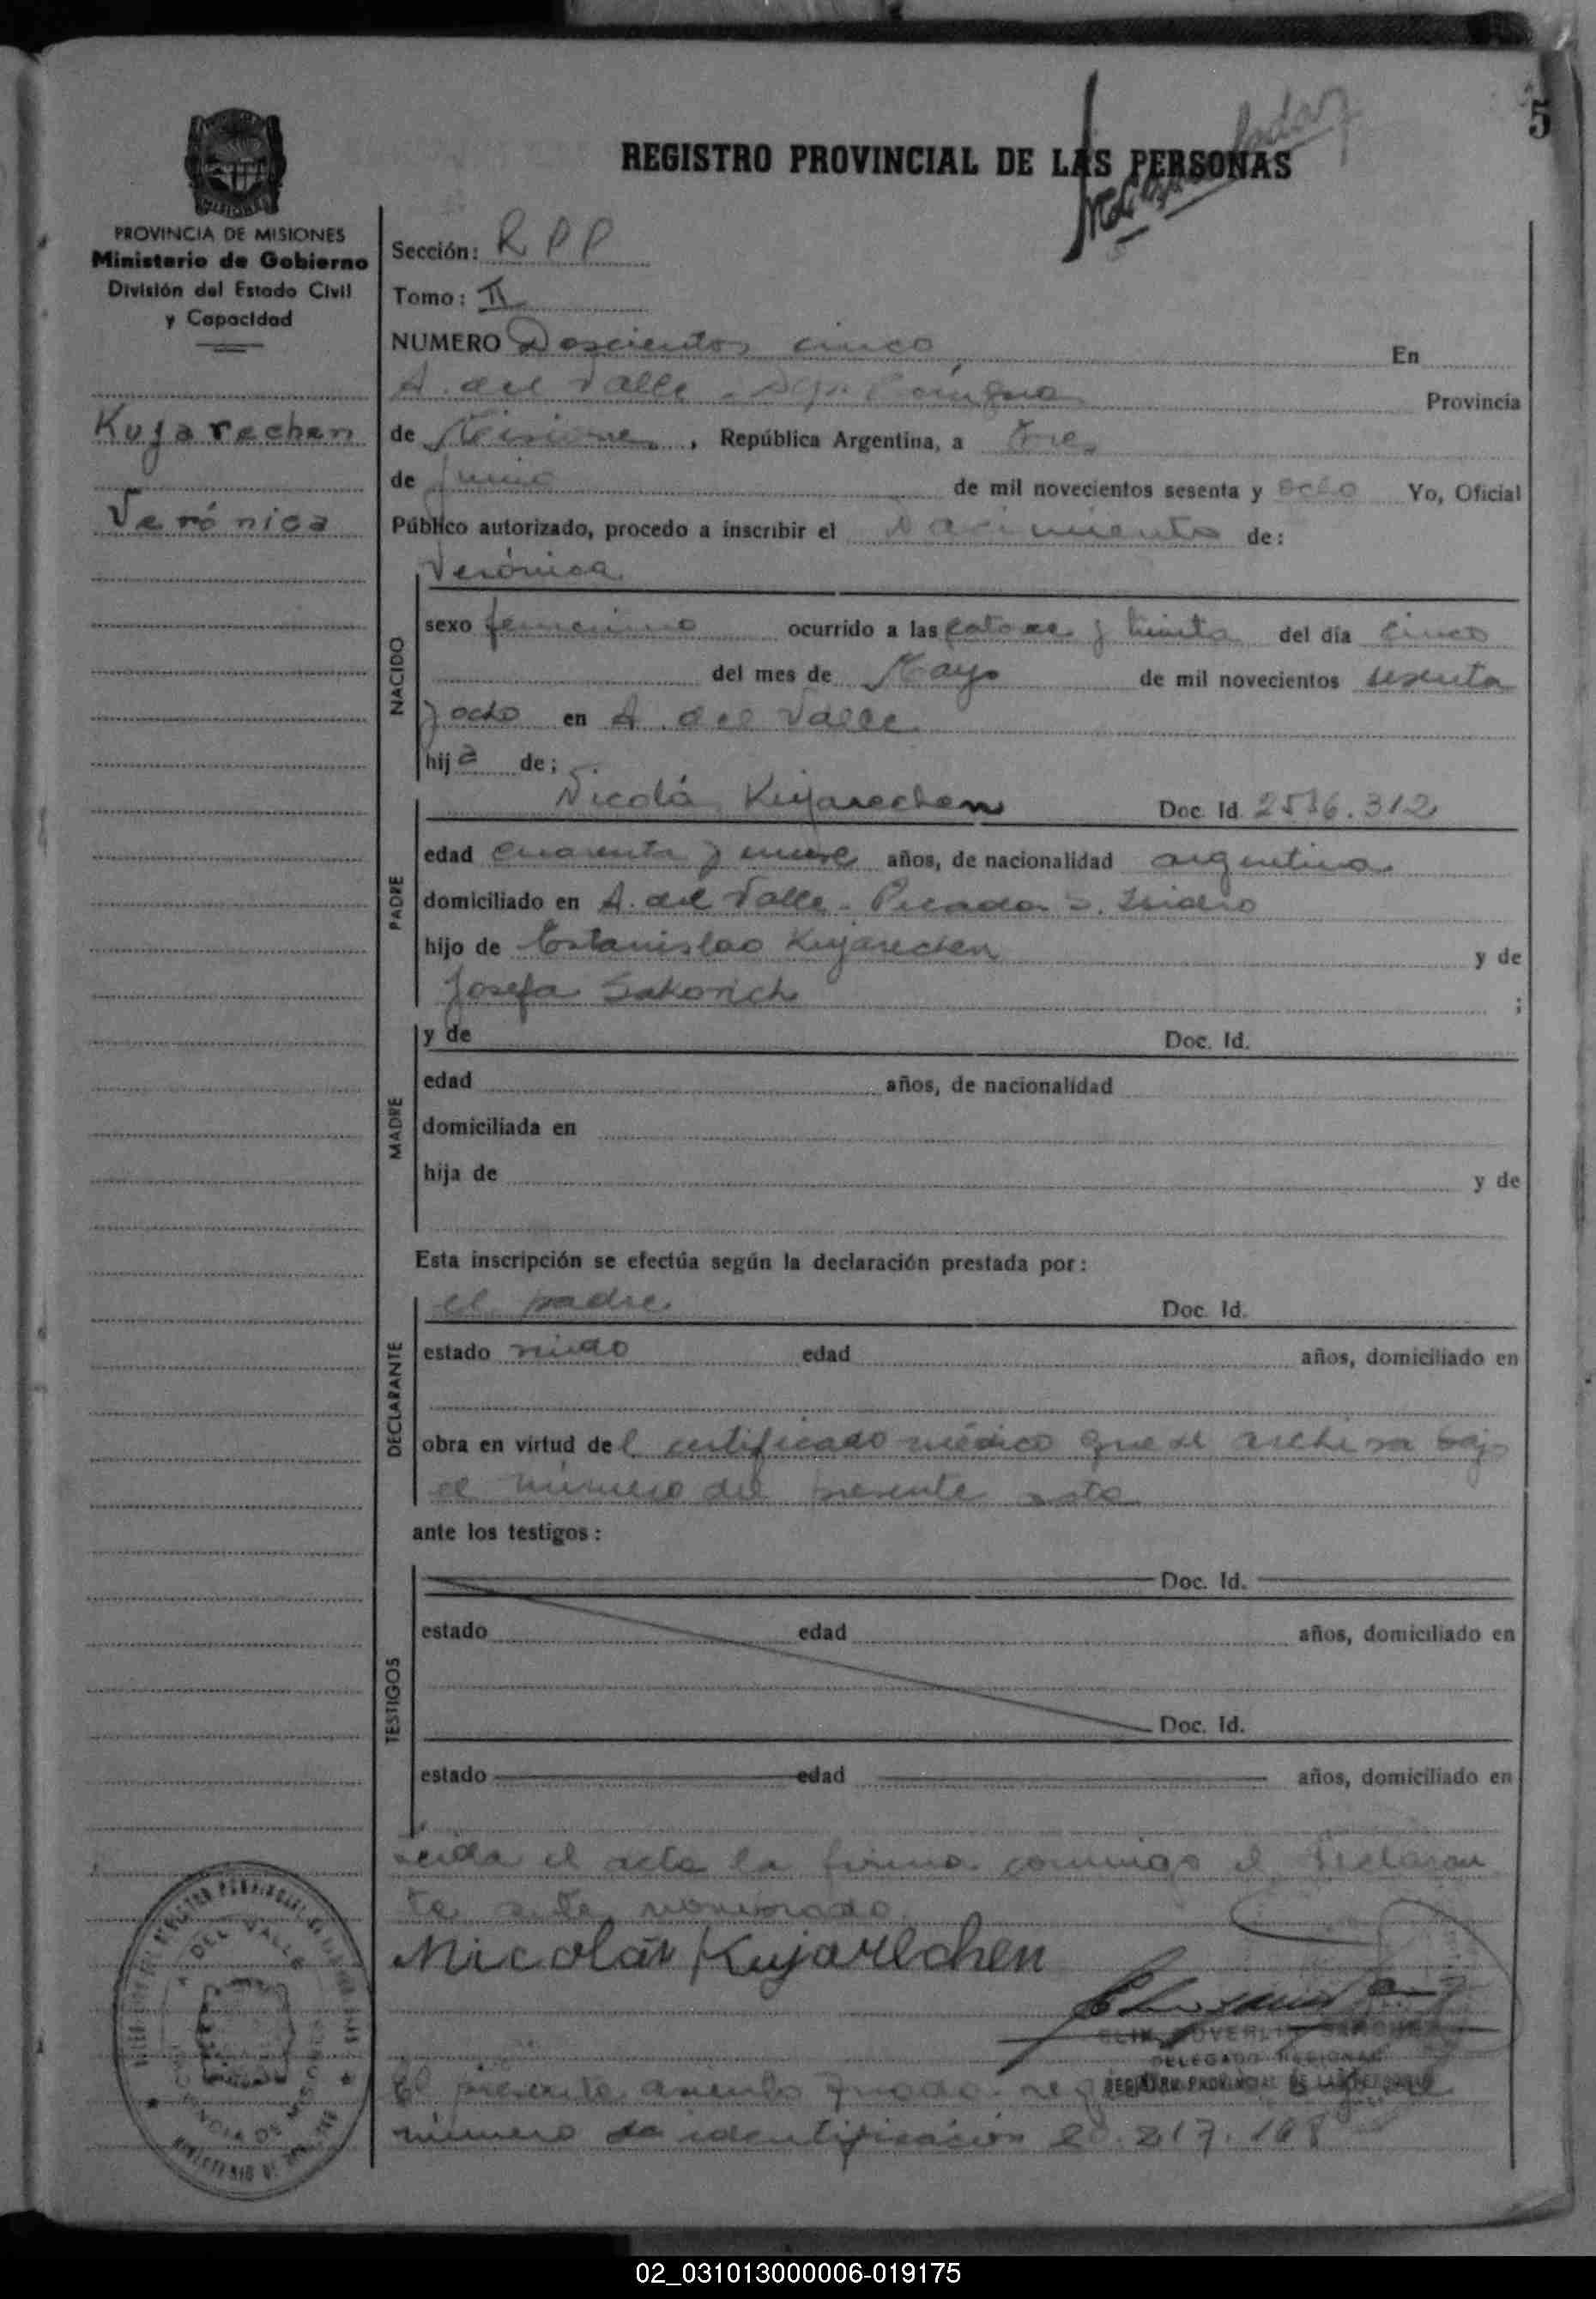 5
REGISTRO PROVINCIAL DE LAS PERSONAS
PROVINCIA DE MISIONES
Ministerio de Gobierno
División del Estado Civil
y Capacidad
Kujarechen
Verónica
Sección: RPP
Tomo: II
NUMERO Doscientos cinco En
A. del Valle Provincia
de Misiones, República Argentina, a tres
de junio de mil novecientos sesenta y ocho Yo, Oficial
Público autorizado, procedo a inscribir el nacimiento de:
Verónica
NACIDO
sexo femenino ocurrido a las catorce y treinta del día cinco
del mes de Mayo de mil novecientos sesenta
y ocho en A. del Valle
hija de:
PADRE
Nicolá Kujarechen Doc. Id. 2536.312
edad cuarenta y nueve años, de nacionalidad argentina
domiciliado en A. del Valle - Picada S. Isidro
hijo de Estanislao Kujarechen y de
Josefa Sakovich ;
MADRE
y de Doc. Id.
edad años, de nacionalidad
domiciliada en
hija de y de
Esta inscripción se efectúa según la declaración prestada por:
DECLARANTE
el padre Doc. Id.
estado viudo edad años, domiciliado en
obra en virtud del certificado médico que se archiva bajo
el número del presente acta
ante los testigos:
TESTIGOS
Doc. Id.
estado edad años, domiciliado en
Doc. Id.
estado edad años, domiciliado en
Leida el acta la firma conmigo el declaran
te ante nombrado.
Nicolás Kujarechen
DELEGADO REGIONAL
REGISTRO PROVINCIAL DE LAS PERSONAS
El presente asiento
número de identificación 20.217.168
DEL VALLE
PROVINCIA DE MISIONES
02_031013000006-019175